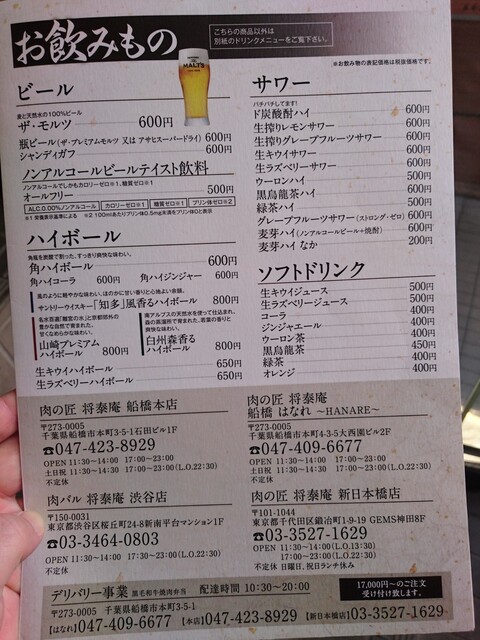 お飲みもの
こちらの商品以外は
別紙のドリンクメニューをご覧下さい。
※お飲み物の表記価格は税抜価格です。
MALT'S
ビール
麦と天然水の100%ビール
ザ・モルツ 600円
瓶ビール(ザ・プレミアムモルツ 又は アサヒスーパードライ) 600円
シャンディガフ 600円
ノンアルコールビールテイスト飲料
ノンアルコールでしかもカロリーゼロ※1、糖質ゼロ※1
オールフリー 500円
ALC.0.00%ノンアルコール カロリーゼロ※1 糖質ゼロ※1 プリン体ゼロ※2
※1 栄養表示基準による ※2 100mlあたりプリン体0.5mg未満をプリン体0と表示
ハイボール
角瓶を炭酸で割った、すっきり爽快な味わい。
角ハイボール 600円
角ハイコーラ 600円 角ハイジンジャー 600円
風のように軽やかな味わい。ほのかに甘い香りと心地よい余韻。
サントリーウイスキー「知多」風香るハイボール 800円
名水百選「離宮の水」と京都郊外の
豊かな自然で育まれた、
甘くなめらかな味わい。
山崎プレミアム
ハイボール 800円
南アルプスの天然水を使って仕込まれ、
森の蒸溜所で育まれた、若葉の香りと
爽快な味わい。
白州森香る
ハイボール 800円
生キウイハイボール 650円
生ラズベリーハイボール 650円
サワー
パチパチしてます!
ド炭酸酎ハイ 600円
生搾りレモンサワー 600円
生搾りグレープフルーツサワー 600円
生キウイサワー 600円
生ラズベリーサワー 600円
ウーロンハイ 500円
黒烏龍茶ハイ 600円
緑茶ハイ 500円
グレープフルーツサワー(ストロング・ゼロ) 600円
麦芽ハイ(ノンアルコールビール+焼酎) 600円
麦芽ハイ なか 200円
ソフトドリンク
生キウイジュース 500円
生ラズベリージュース 500円
コーラ 400円
ジンジャエール 400円
ウーロン茶 400円
黒烏龍茶 450円
緑茶 400円
オレンジ 400円
肉の匠 将泰庵 船橋本店
〒273-0005
千葉県船橋市本町3-5-1石田ビル1F
☎047-423-8929
OPEN 11:30〜14:00 17:00〜23:00
土日祝 11:30〜14:30 17:00〜23:00(L.O.22:30)
不定休
肉の匠 将泰庵
船橋 はなれ 〜HANARE〜
〒273-0005
千葉県船橋市本町4-3-5大西園ビル2F
☎047-409-6677
OPEN 11:30〜14:00 17:00〜23:00
土日祝 11:30〜14:30 17:00〜23:00(L.O.22:30)
不定休
肉バル 将泰庵 渋谷店
〒150-0031
東京都渋谷区桜丘町24-8新南平台マンション1F
☎03-3464-0803
OPEN 11:30〜14:00 17:00〜23:00(L.O.22:30)
不定休
肉の匠 将泰庵 新日本橋店
〒101-1044
東京都千代田区鍛冶町1-9-19 GEMS神田8F
☎03-3527-1629
OPEN 11:30〜14:00(L.O.13:30)
17:30〜23:00(L.O.22:30)
不定休 日曜日、祝日ランチ休み
デリバリー事業 黒毛和牛焼肉弁当 配達時間 10:30〜20:00
17,000円〜のご注文
受け付け致します。
〒273-0005 千葉県船橋市本町3-5-1
【はなれ】047-409-6677 【本店】047-423-8929 【新日本橋店】03-3527-1629